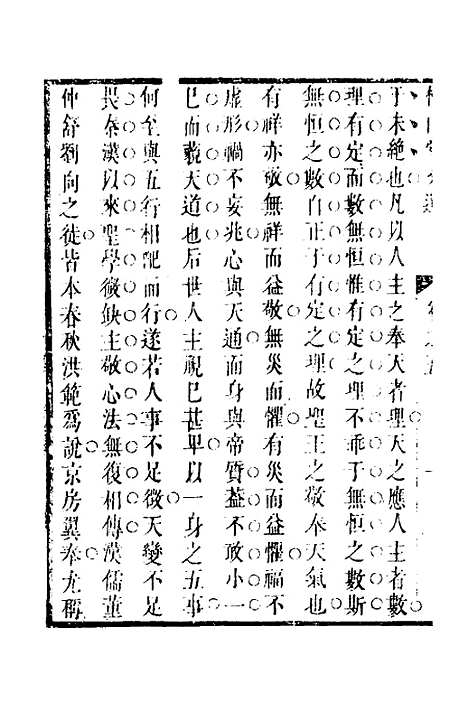 于未絶也凡以人主之奉天者理天之應人主者數
理有定而數無恒惟有定之理不乖于無恒之數斯
無恒之數自正于有定之理故聖王之敬奉天氣也
有祥亦敬無祥而益敬無災而懼有災而益懼福不
虛形禍不妄兆心與天通而身與帝質葢不敢小一
已而藐天道也后世人主視已甚卑以一身之五事
何至與五行相配而行遂若人事不足徵天變不足
畏秦漢以來聖學微缺主敬心法無復相傳漢儒董
仲舒劉向之徒皆本春秋洪範爲說京房翼奉尤稱